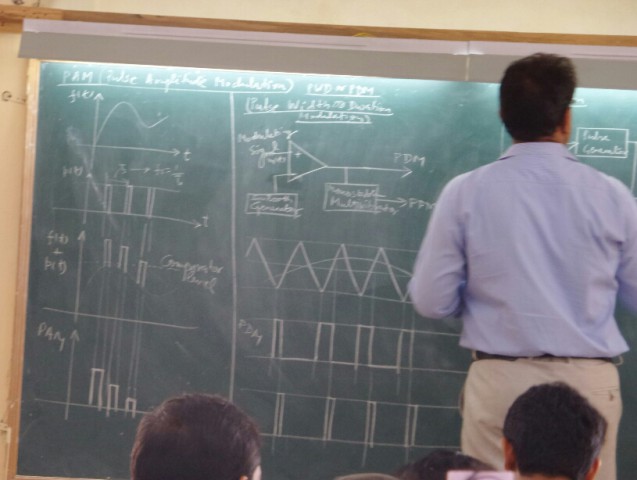 PAM (Pulse Amplitude Modulation)
f(t)
t
T
f(t)
+
p(t)
Comparator
Level
PAM
PWM or PDM
(Pulse Width or Duration
Modulation)
Modulating
Signal
m(t)
+
-
PDM
Generator
Monostable
Multivibrator
PPM
PDM
Pulse
Generator